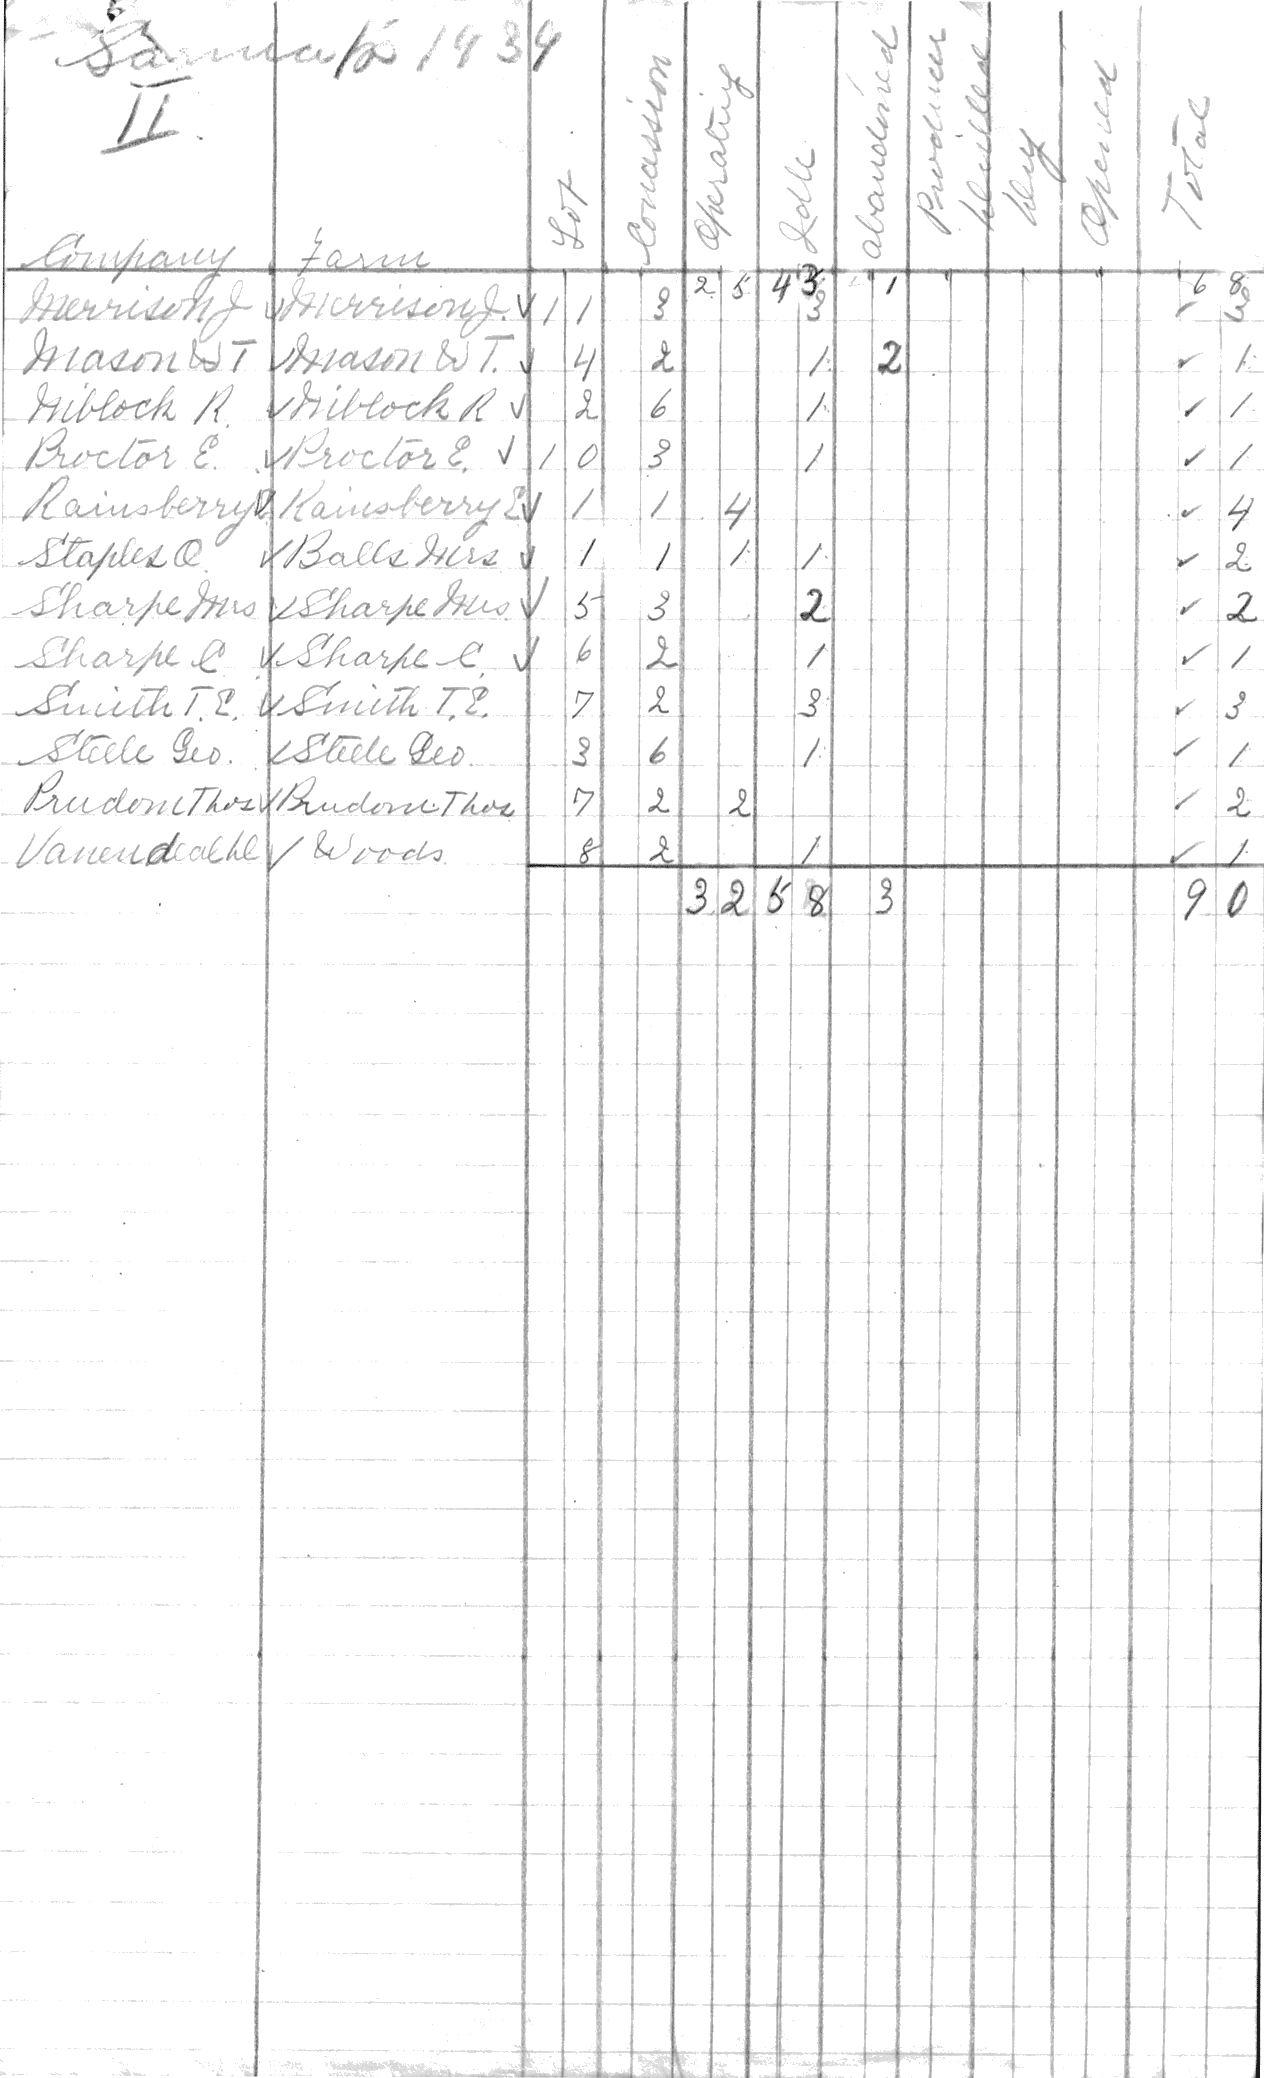 Sarnia 1939
II
Company Farm Lot Concession Operating Idle Abandoned Producer Drilled Dry Opened Total
25 43 1 68
Merrison J Merrison J. 11 3 3 3
Mason W T Mason W T. 4 2 1 2 1
Niblock R. Niblock R 2 6 1 1
Proctor E. Proctor E. 10 3 1 1
Rainsberry E Rainsberry E 1 1 4 4
Staples O. Balls Mrs 1 1 1 1 2
Sharpe Mrs Sharpe Mrs 5 3 2 2
Sharpe C Sharpe C. 6 2 1 1
Smith T. E. Smith T. E. 7 2 3 3
Steele Geo. Steele Geo. 3 6 1 1
Prudom Thos Prudom Thos 7 2 2 2
Woods 8 2 1 1
32 58 3 90